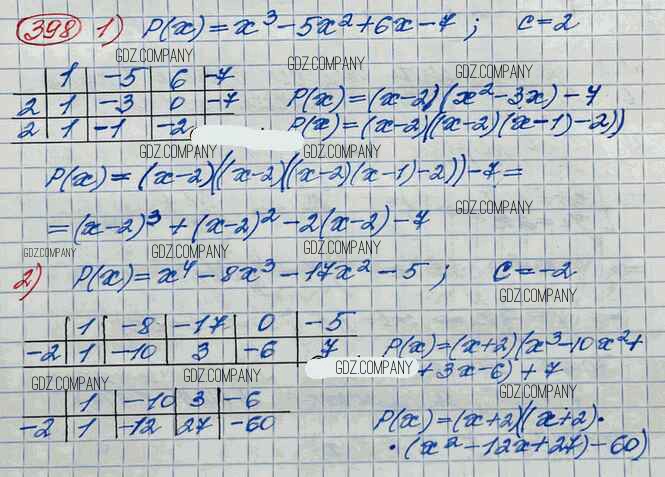 398 1) P(x) = x³ - 5x² + 6x - 7 ; c = 2
GDZ.COMPANY GDZ.COMPANY
1 -5 6 -7 GDZ.COMPANY
2 1 -3 0 -7 P(x) = (x-2)(x² - 3x) - 7
2 1 -1 -2 P(x) = (x-2)((x-2)(x-1)-2))
GDZ.COMPANY GDZ.COMPANY
P(x) = (x-2)((x-2)((x-2)(x-1)-2)) - 7 =
GDZ.COMPANY
= (x-2)³ + (x-2)² - 2(x-2) - 7
GDZ.COMPANY GDZ.COMPANY GDZ.COMPANY
2) P(x) = x⁴ - 8x³ - 17x² - 5 ; c = -2
GDZ.COMPANY
1 -8 -17 0 -5
-2 1 -10 3 -6 7 P(x) = (x+2)(x³ - 10x² +
+ 3x - 6) + 7
GDZ.COMPANY GDZ.COMPANY GDZ.COMPANY
GDZ.COMPANY
1 -10 3 -6
-2 1 -12 27 -60 P(x) = (x+2)((x+2) ·
· (x² - 12x + 27) - 60)